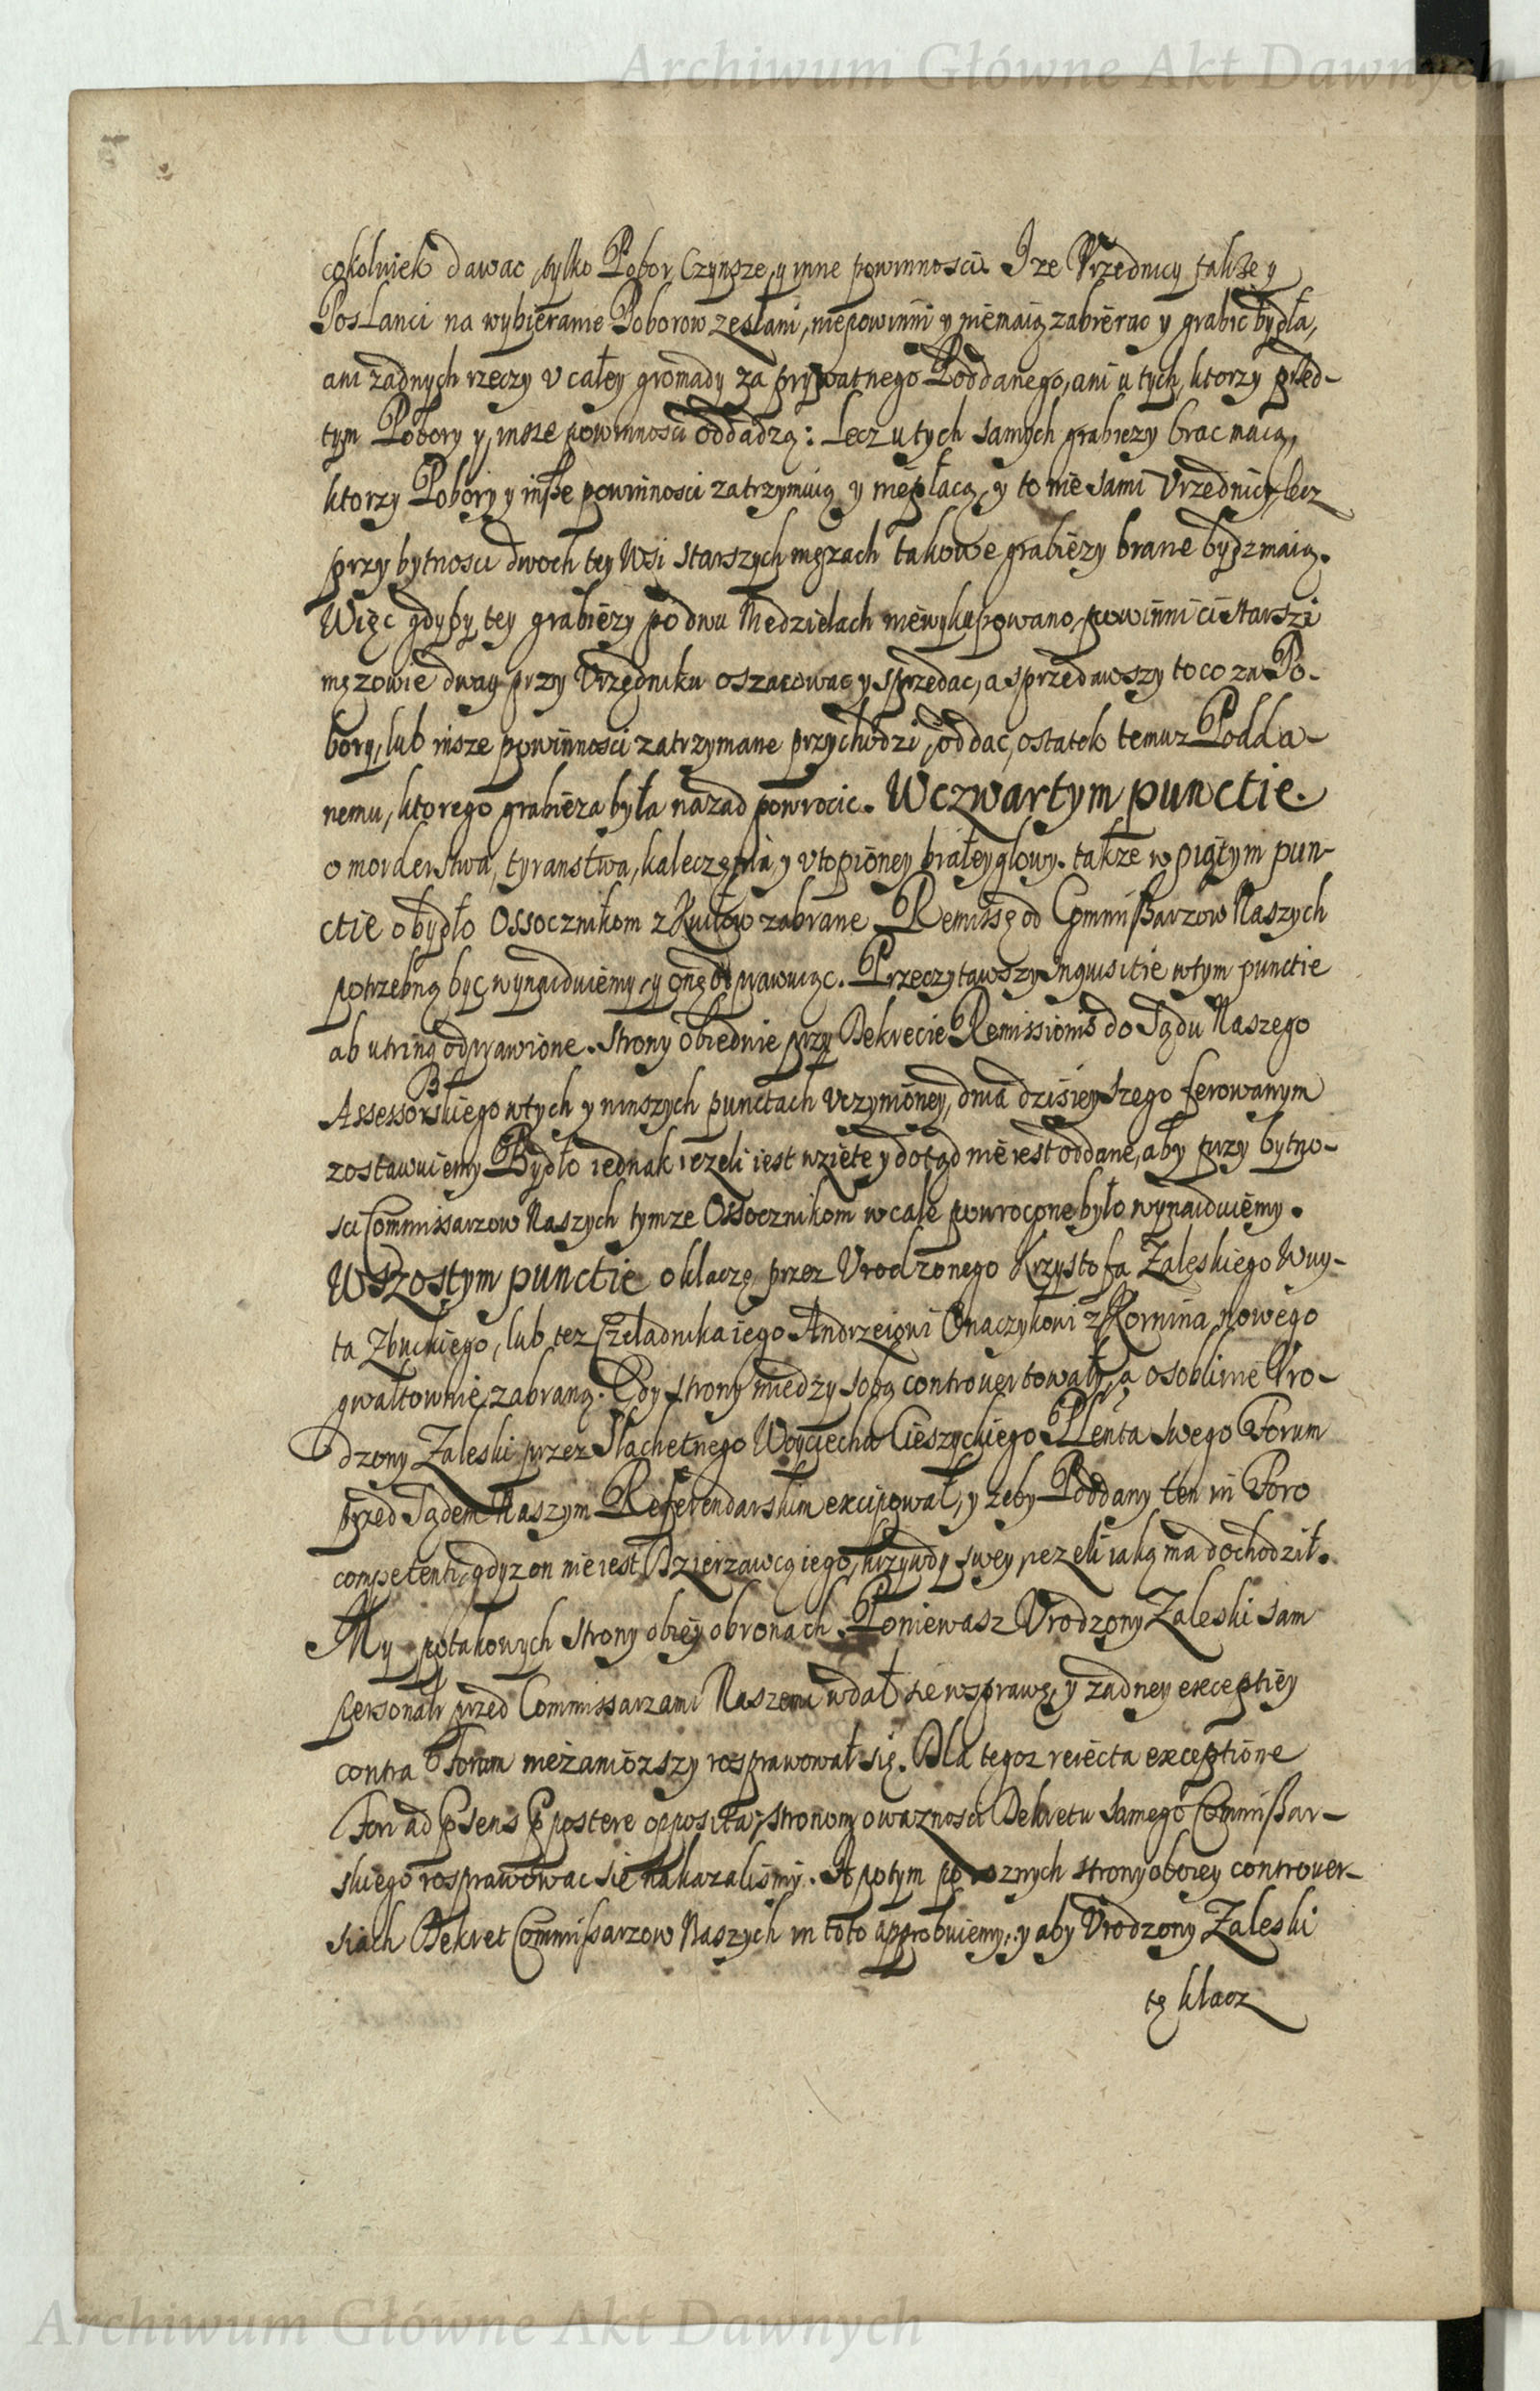 Archiwum Główne Akt Dawnych
cokolwiek dawac, tylko Pobor, Czynsze, y inne powinnosci. I ze Vrzednicy także y
Posłanci na wybieranie Poborow zesłani, niepowinni y niemaią zabierac y grabic bydła,
ani żadnych rzeczy v całey gromady za prywatnego Poddanego, ani u tych, ktorzy przed-
tym Pobory y insze powinnosci oddadzą: Lecz u tych samych grabiezy brac maią,
ktorzy Pobory y inße powinnosci zatrzymuią y niepłacą, y to nie sami Vrzednicy, lecz
przy bytnosci dwoch tey Wsi starszych mężach takowe grabieży brane bydz maią.
Więc gdyby tey grabieży po dwu Niedzielach niewykupowano, powinni ci starszi
mężowie dway przy Vrzędniku oszacowac y sprzedac, a sprzedawszy to co za Po-
bory, lub insze powinnosci zatrzymane przychodzi, oddac, ostatek temuz Podda-
nemu, ktorego grabieża była nazad powrocic. W czwartym punctie
o morderstwa, tyranstwa, kaleczenia y vtopioney białeyglowy. także w piątym pun-
ctie o bydło Ossocznikom z zabrane Remissę od Commißarzow Naszych
potrzebną byc wynayduiemy, y onę odprawuiąc. Przeczytawszy Inquisitie w tym punctie
ab utrinq odprawione. Strony obiednie przy Dekrecie Remissionis do Sądu Naszego
Assessorskiego w tych y inszych punctach vczynioney, dnia dzisieyszego ferowanym
zostawuiemy Bydło iednak ieżeli iest wzięte y dotąd nie iest oddane, aby przy bytno-
sci Commissarzow Naszych tymze Ossocznikom w cale powrocone było wynayduiemy.
W szostym punctie o klaczę, przez Vrodzonego Krzysztofa Zaleskiego Wuy-
ta Zbuckiego, lub tez Czeladnika iego Andrzeiowi Onaczykowi z Kornina nowego
gwałtownie zabraną. Gdy strony miedzy sobą controvertowały, a osobliwie Vro-
dzony Zaleski przez Slachetnego Woyciecha Cieszyckiego Plenta swego Forum
przed Sądem Naszym Referendarskim excipował, y żeby Poddany ten in Foro
competenti, gdyz on nie iest Dzierzawcą iego, krzywdy swey ieżeli iaką ma dochodził.
My po takowych strony obiey obronach. Poniewasz Vrodzony Zaleski sam
personalr przed Commissarzami Naszemi wdał sie w sprawę, y zadney exceptiey
contra Forum nieżaniozszy rosprawował się. Dla tegoz reiecta exceptione
Fori ad psens postere opposita, stronom o waznosci Dekretu samego Commißar-
skiego rosprawowac sie nakazalismy. A potym po roznych strony oboiey controver-
siach Dekret Commißarzow Naszych in toto approbuiemy, y aby Vrodzony Zaleski
tę klacz
Archiwum Główne Akt Dawnych